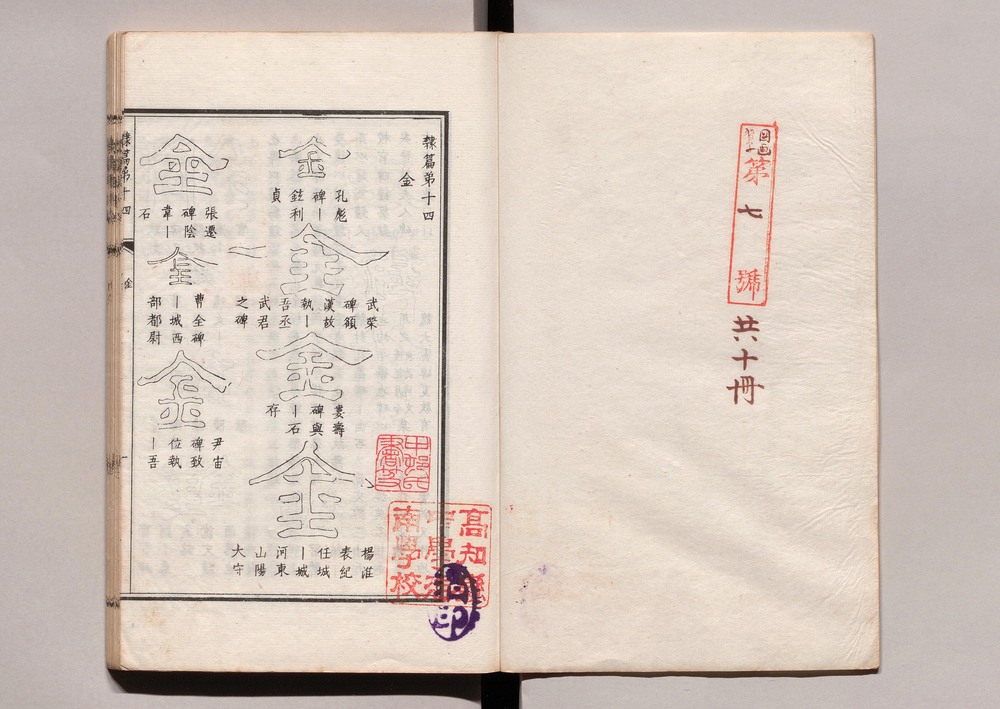 第七號
共十冊
隸篇第十四
金
金
孔彪
碑｜
鉉利
貞
金
武榮
碑額
漢故
執｜
吾丞
武君
之碑
金
婁壽
碑與
｜石
存
金
楊淮
表紀
任城
｜城
河東
山陽
大守
金
張遷
碑陰
韋｜
石
金
曹全碑
｜城西
部都尉
金
尹宙
碑致
位執
｜吾
隸篇第十四
金
一
高知縣
南學校